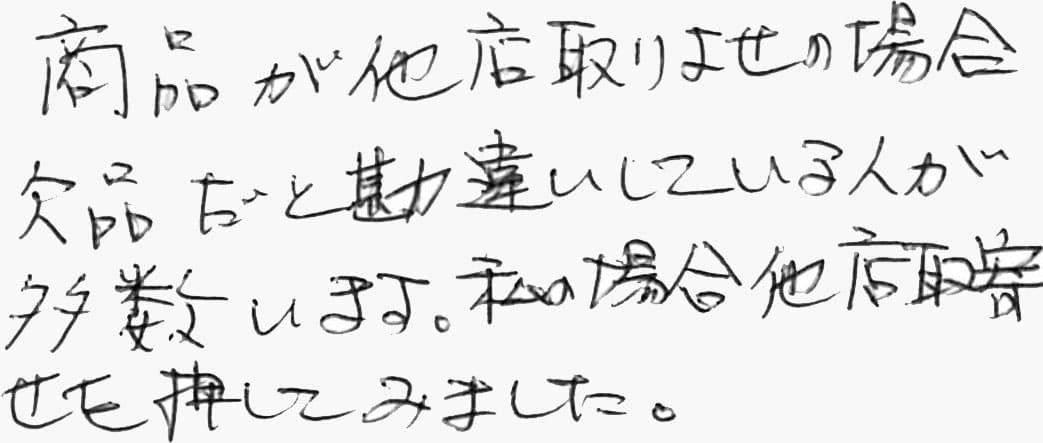 商品が他店取りよせの場合
欠品だと勘違いしている人が
多数います。私の場合他店取寄
せを押してみました。